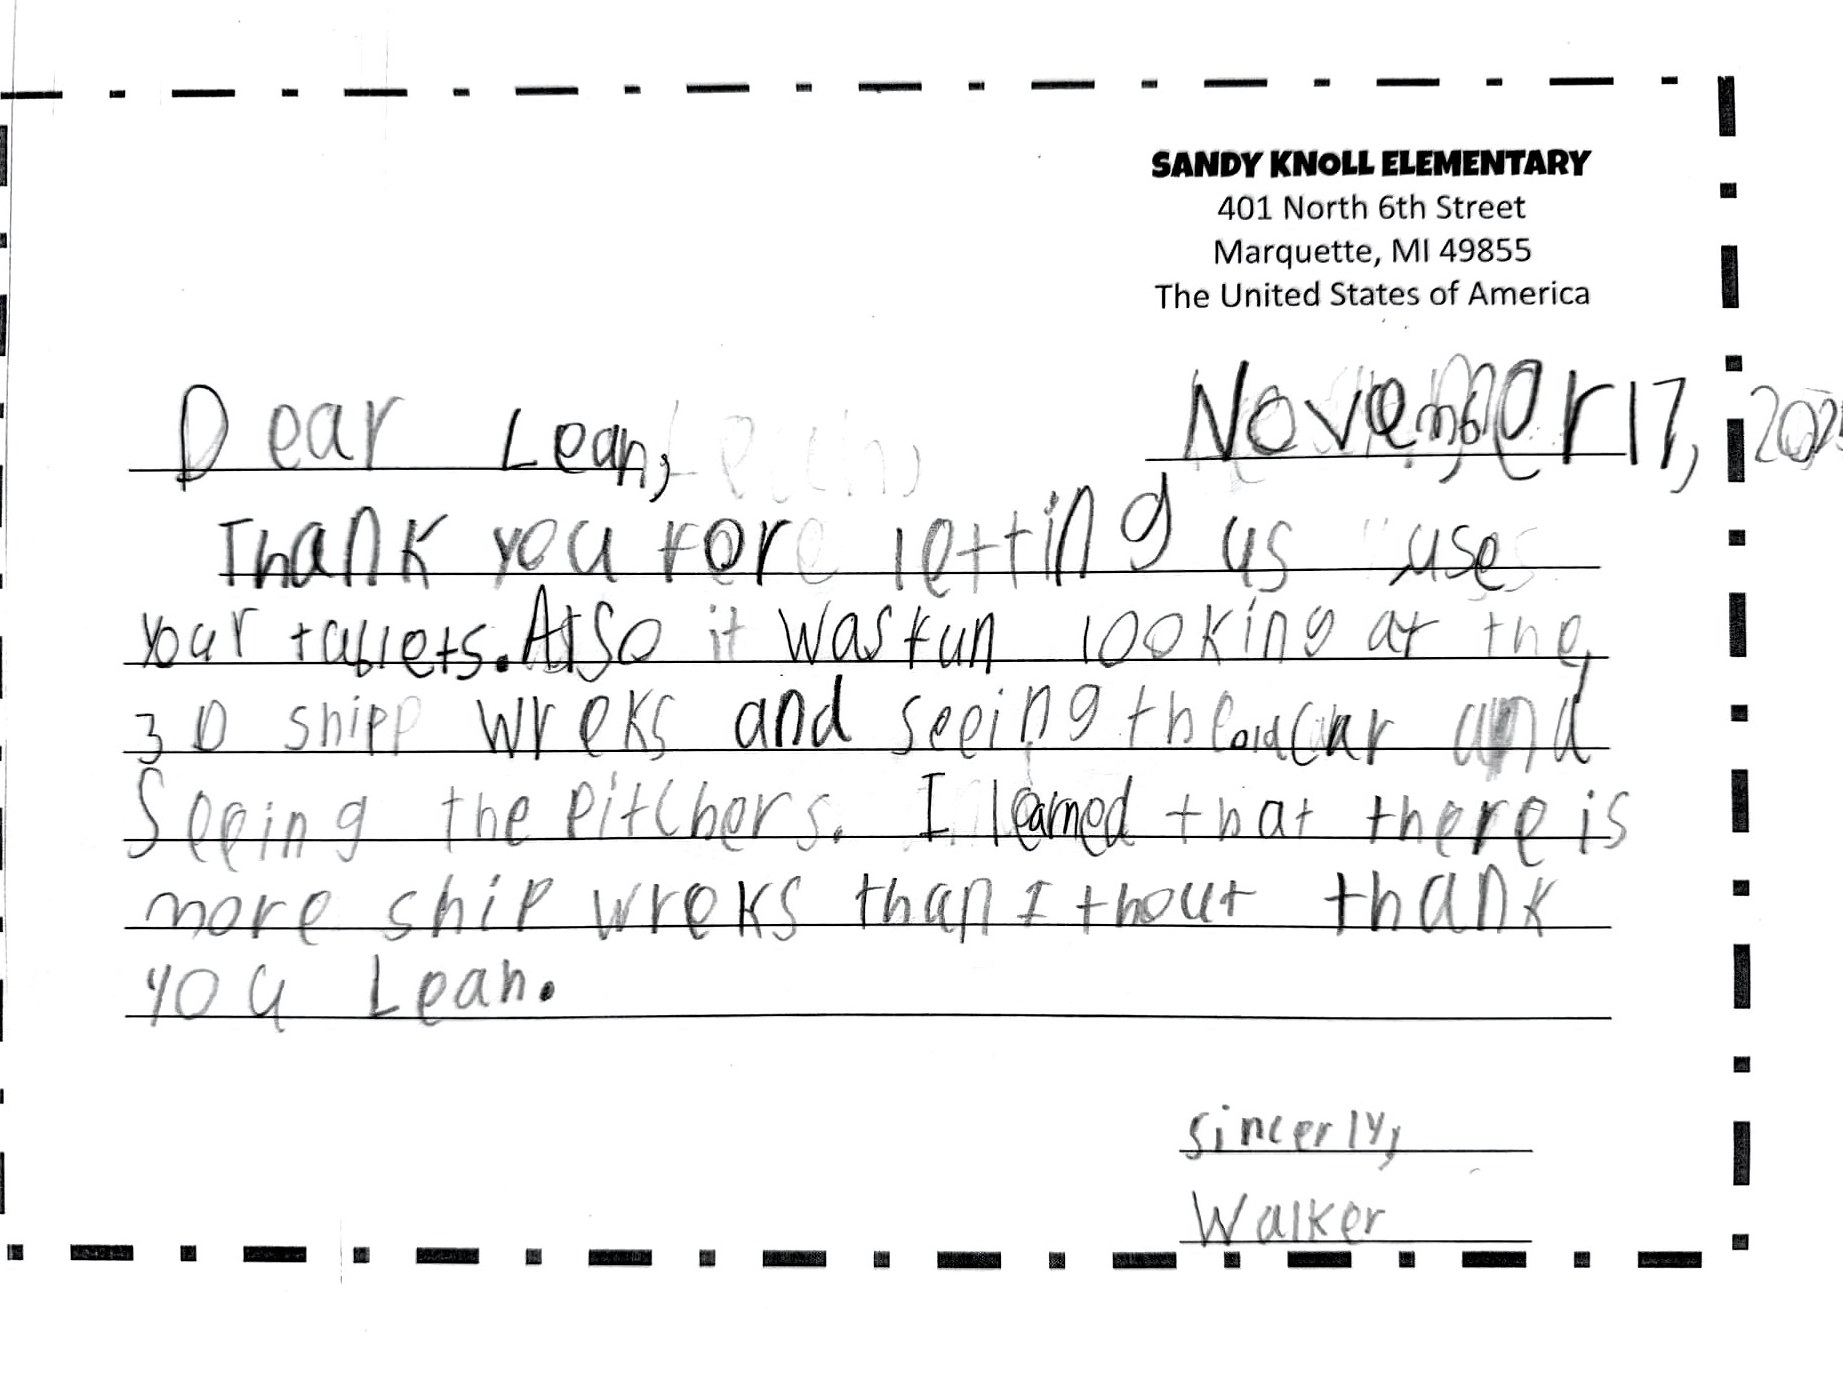 SANDY KNOLL ELEMENTARY
401 North 6th Street
Marquette, MI 49855
The United States of America
Dear Leah, November 17,
Thank you for letting us use
your tablets. Also it was fun looking at the
3D shipp wreks and seeing the old car and
Seeing the pitchers. I learned that there is
more ship wreks than I thout thank
you Leah.
sincerly,
Walker